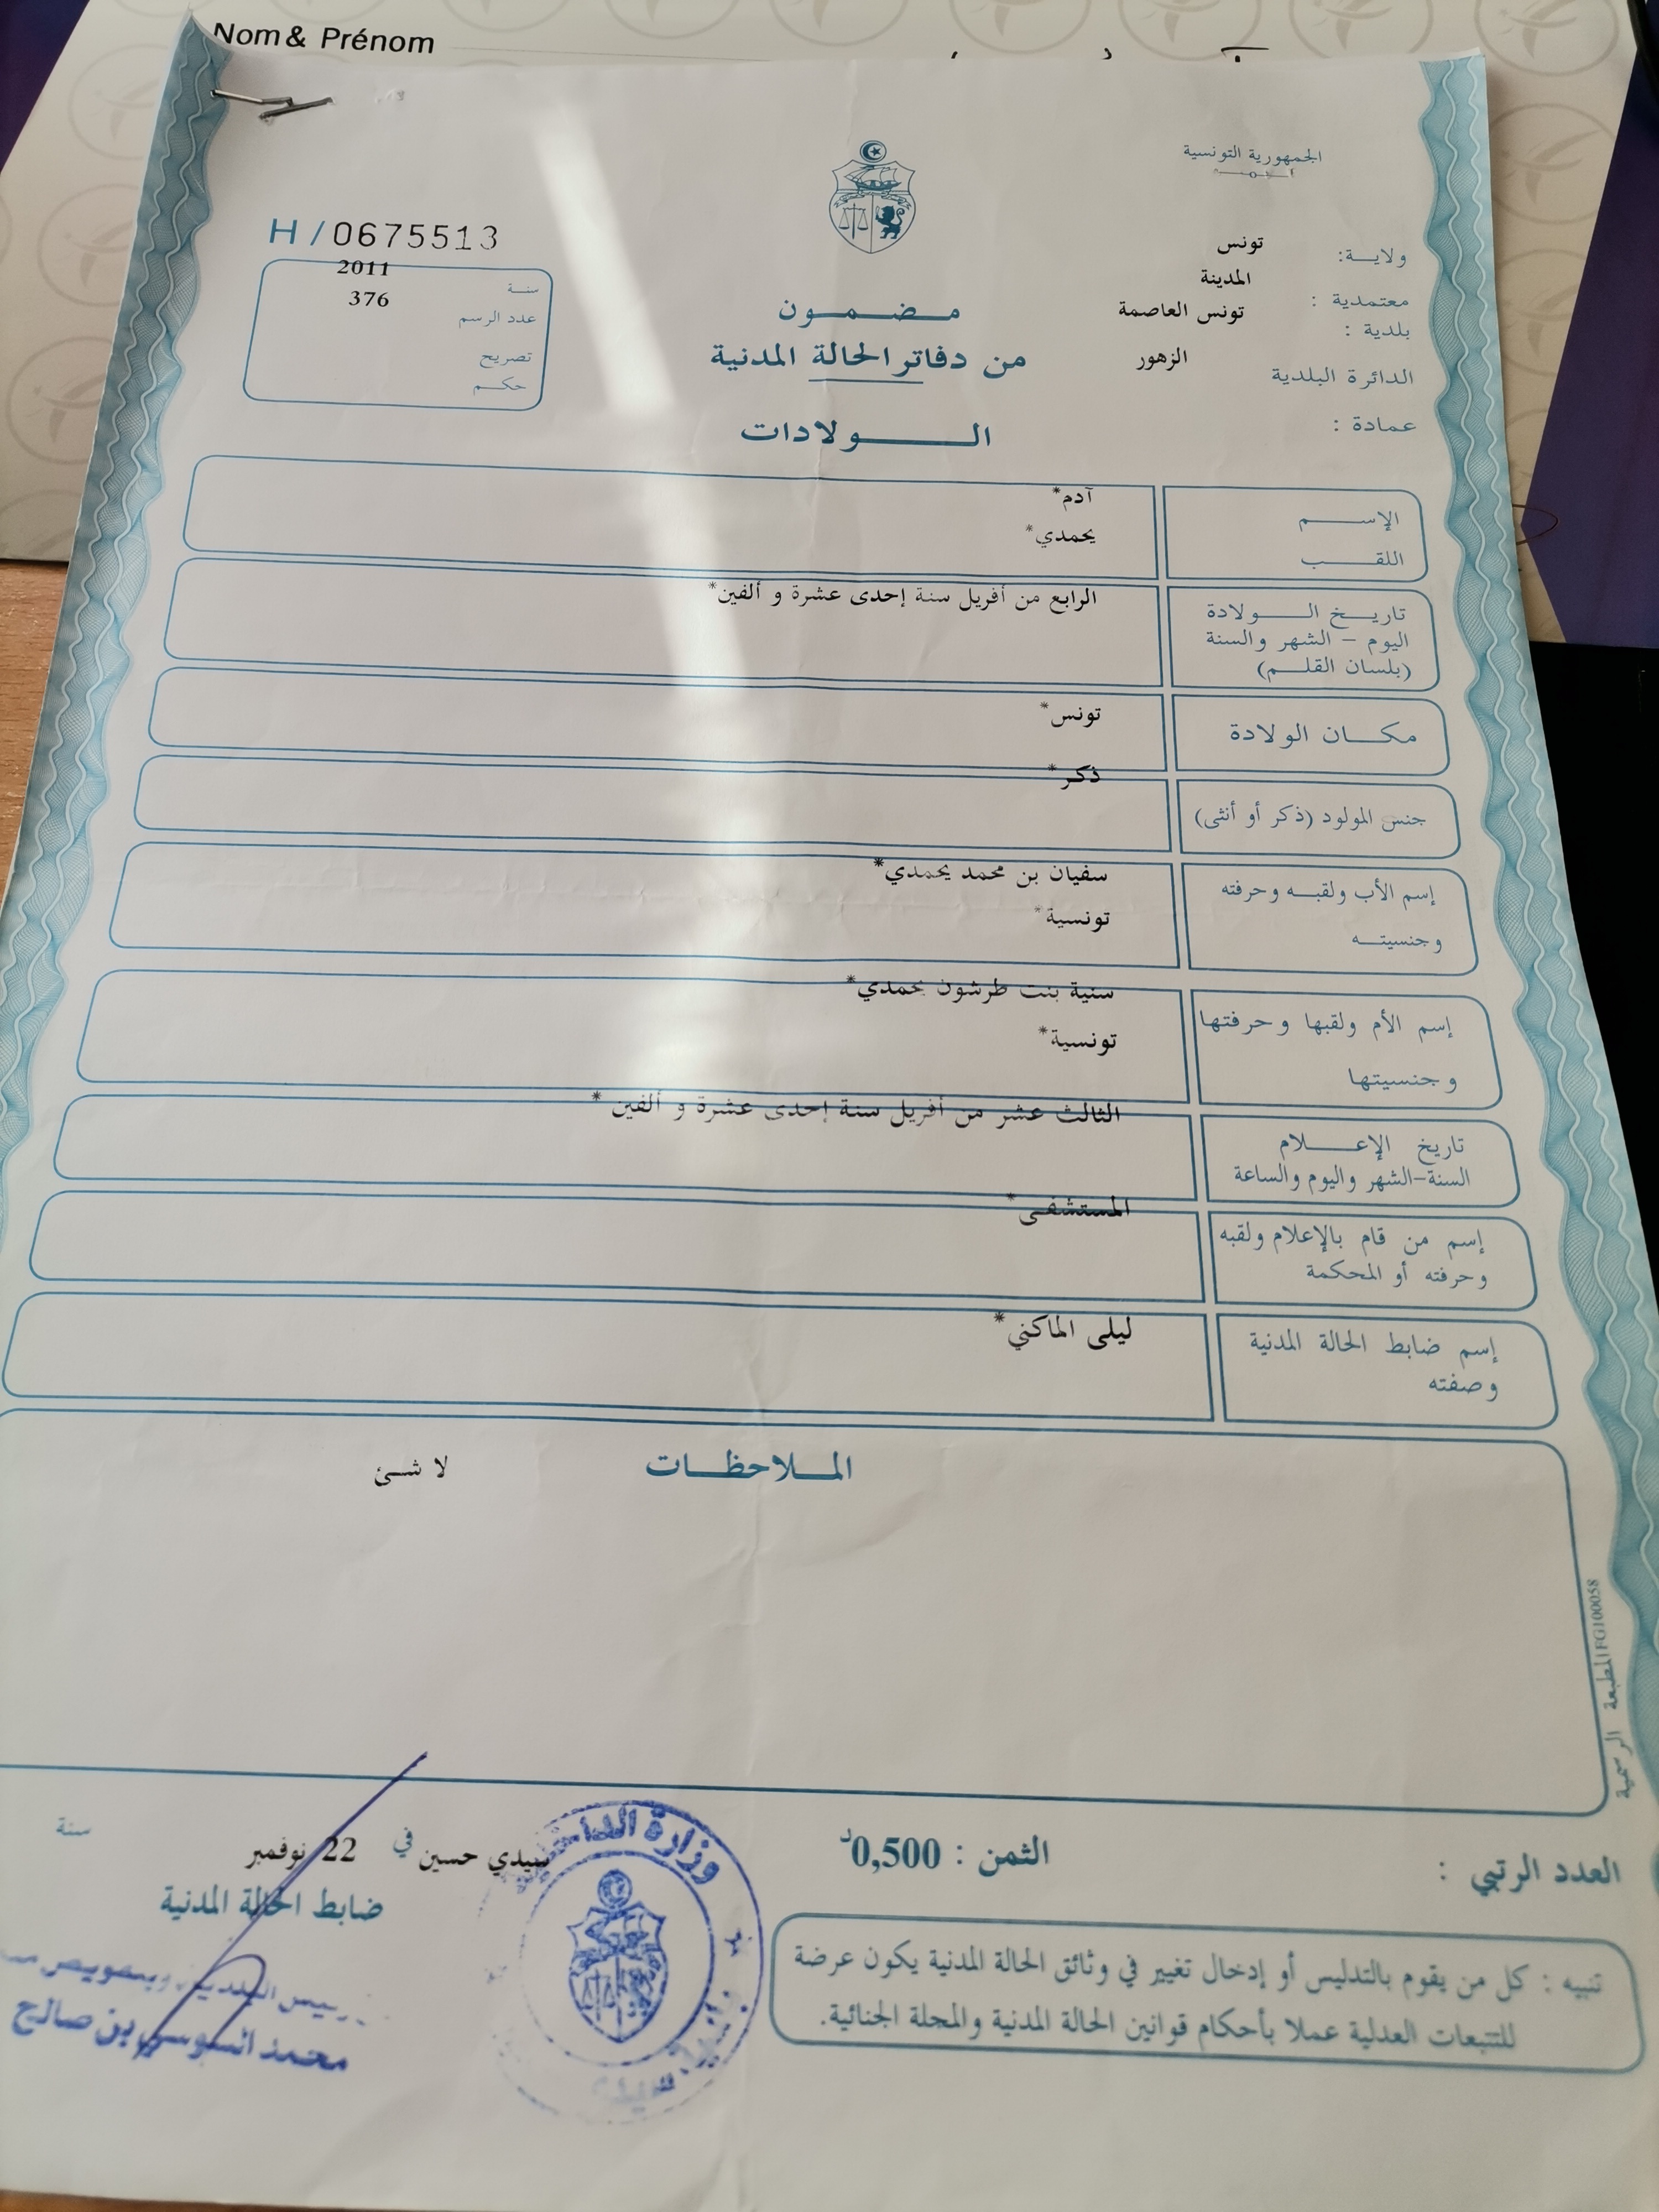 Nom & Prénom
الجمهورية التونسية
H/0675513
ولاية: تونس
معتمدية : المدينة
بلدية : تونس العاصمة
الدائرة البلدية الزهور
عمادة :
سنة 2011
عدد الرسم 376
تصريح
حكم
مضمون
من دفاتر الحالة المدنية
الولادات
الإسم آدم*
اللقب يحمدي*
تاريخ الولادة الرابع من أفريل سنة إحدى عشرة و ألفين*
اليوم - الشهر والسنة
(بلسان القلم)
مكان الولادة تونس*
جنس المولود (ذكر أو أنثى) ذكر*
إسم الأب ولقبه وحرفته سفيان بن محمد يحمدي*
وجنسيته تونسية*
إسم الأم ولقبها وحرفتها سنية بنت طرشون يحمدي*
وجنسيتها تونسية*
تاريخ الإعلام الثالث عشر من أفريل سنة إحدى عشرة و ألفين*
السنة-الشهر واليوم والساعة
إسم من قام بالإعلام ولقبه المستشفى*
وحرفته أو المحكمة
إسم ضابط الحالة المدنية ليلى الماكني*
وصفته
الملاحظات لا شئ
المطبعة الرسمية FG100058
العدد الرتبي :
الثمن : 0,500د
سيدي حسين في 22 نوفمبر سنة
ضابط الحالة المدنية
محمد السوسي بن صالح
وزارة الداخلية
تنبيه : كل من يقوم بالتدليس أو إدخال تغيير في وثائق الحالة المدنية يكون عرضة
للتتبعات العدلية عملا بأحكام قوانين الحالة المدنية والمجلة الجنائية.